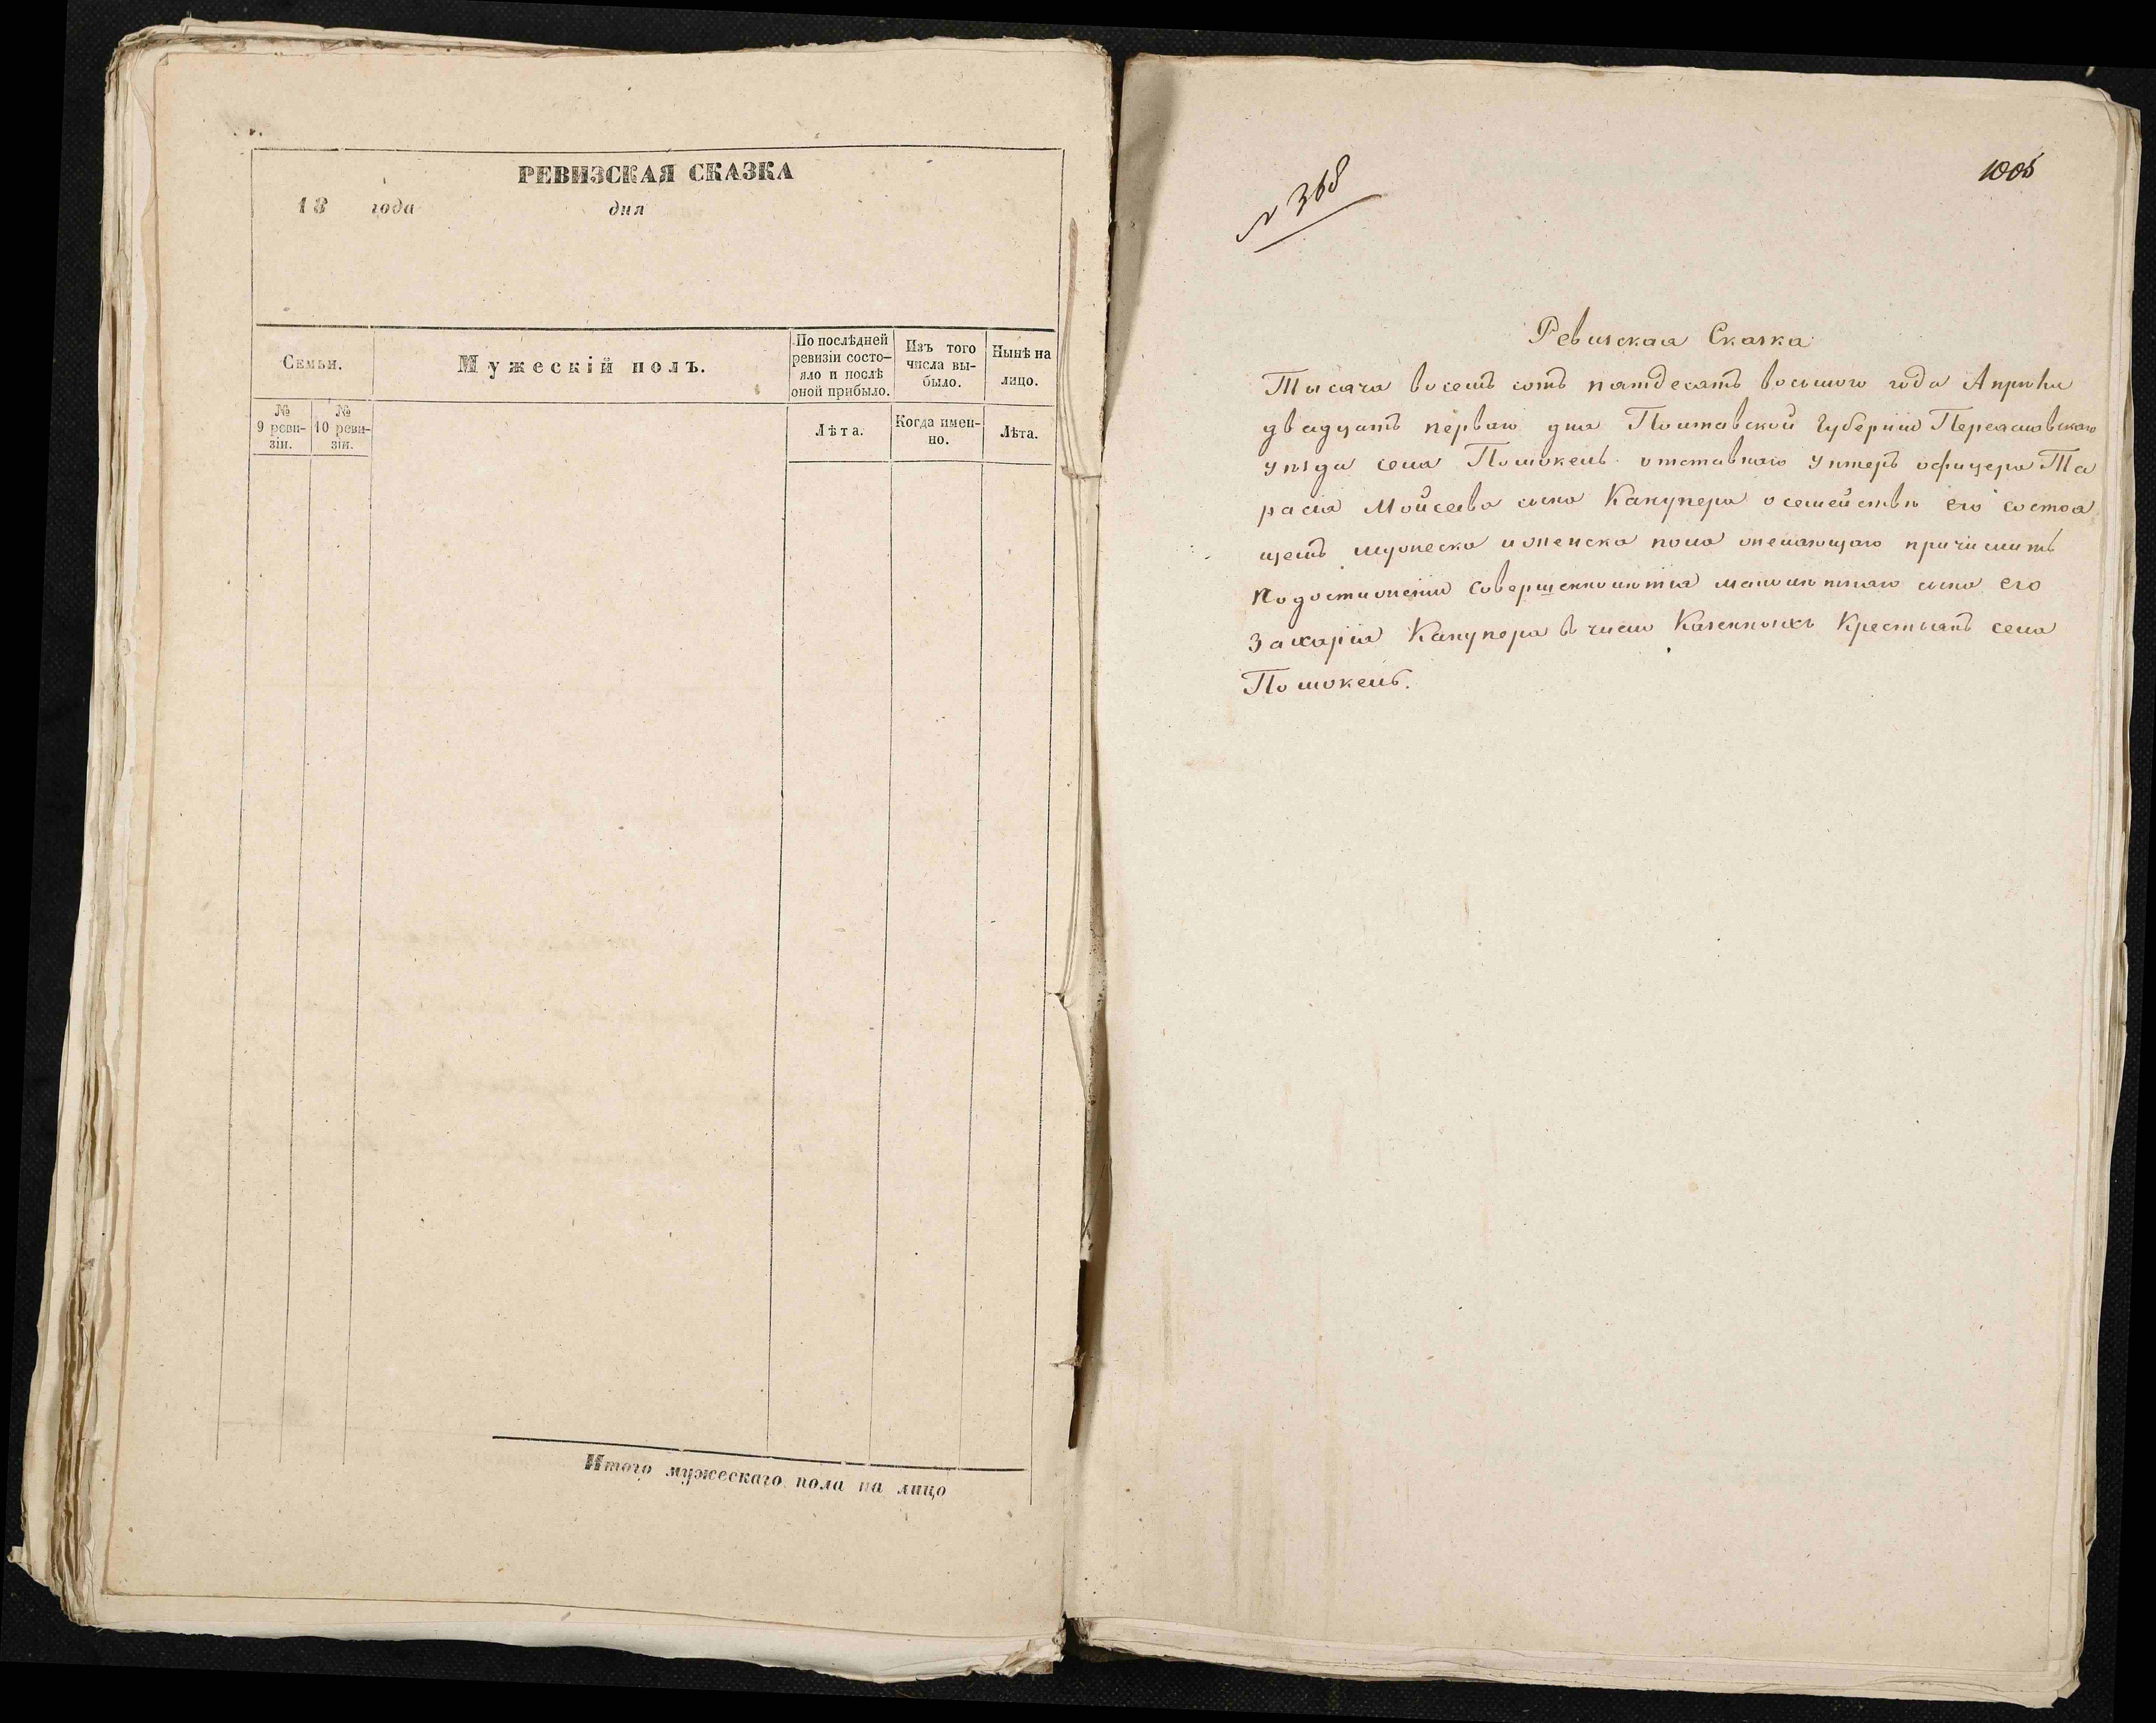 РЕВИЗСКАЯ СКАЗКА
18 года дня
Семьи.
Мужескій полъ.
По послѣдней ревизіи состо-
яло и послѣ
оной прибыло.
Изъ того
числа вы-
было.
Нынѣ на
лицо.
№
9 реви-
зіи.
№
10 реви-
зіи.
Лѣта.
Когда имен-
но.
Лѣта.
Итого мужескаго пола на лицо
№ 368
1005
Ревизская Сказка
Тысяча восемь сотъ пятдесятъ восьмого года Апрѣля
двадцать перваго дня Полтавской Губерніи Переяславскаго
уѣзда села Положель отставнаго унтеръ офицера Та
расія Мойсеева сына Канупера о семействѣ его состоя
щемъ мужеска и женска пола желающаго причислить
по достиженіи совершеннолѣтія малолѣтнаго сына его
Захарія Канупера въ число Казенныхъ Крестьянъ села